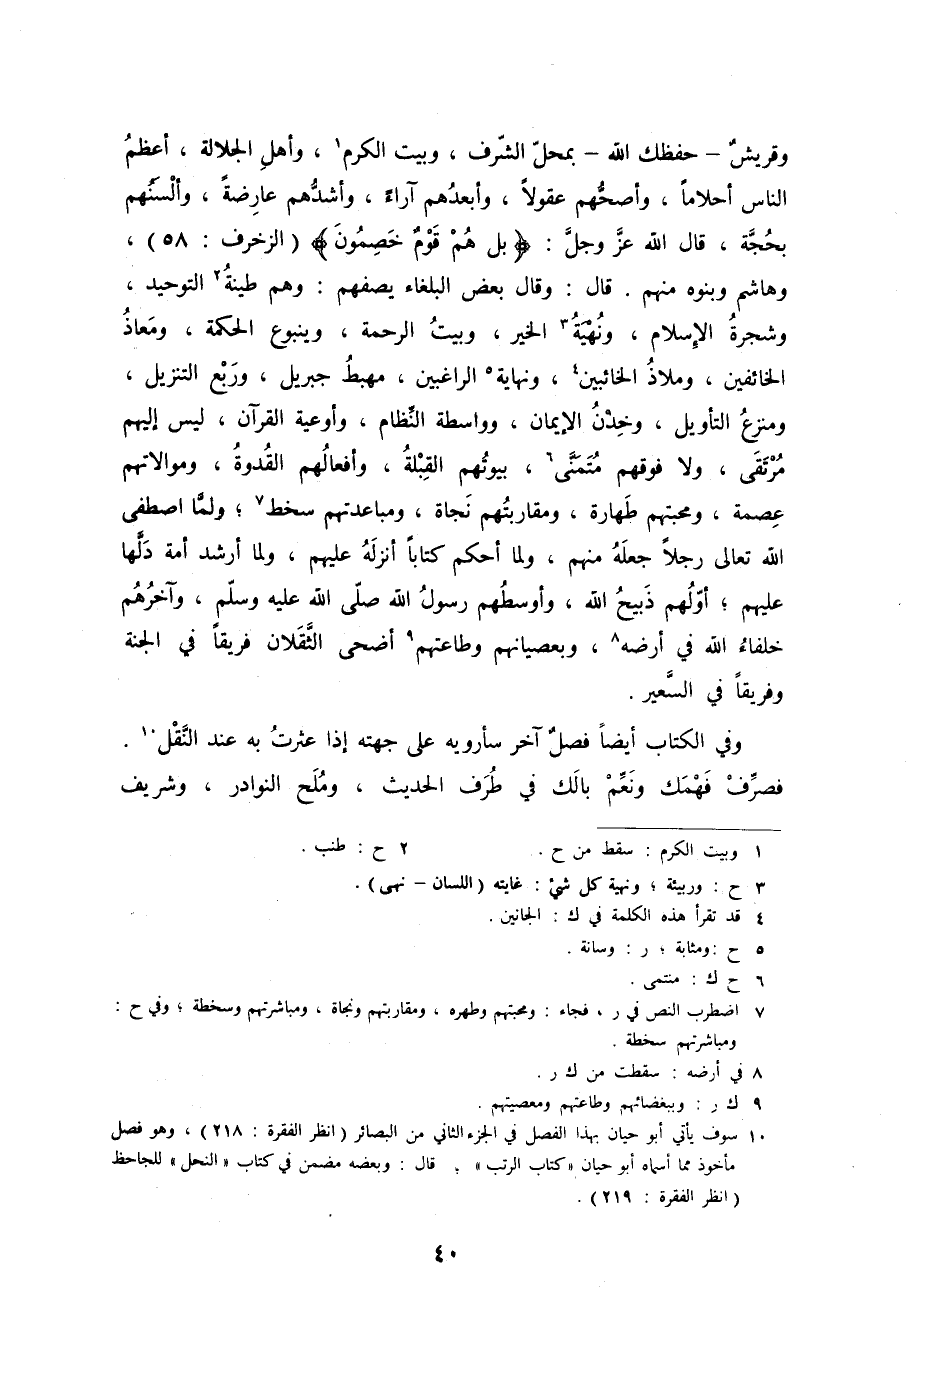 وقريشٌ – حفظك الله – بمحلّ الشّرف ، وبيت الكرم١ ، وأهلِ الجلالة ، أعظمُ
الناس أحلاماً ، وأصحُّهم عقولاً ، وأبعدُهم آراءً ، وأشدُّهم عارِضةً ، وألْسَنُهم
بحُجَّة ، قال الله عزَّ وجلَّ : ﴿بل هُمْ قَوْمٌ خَصِمُونَ﴾ (الزخرف : ٥٨) ،
وهاشم وبنوه منهم . قال : وقال بعض البلغاء يصفهم : وهم طينةُ٢ التوحيد ،
وشجرةُ الإسلام ، ونُهْيَةُ٣ الخير ، وبيتُ الرحمة ، وينبوع الحكمة ، ومَعاذُ
الخائفين ، وملاذُ الخائبين٤ ، ونهاية٥ الراغبين ، مهبطُ جبريل ، ورَبْع التنزيل ،
ومنزعُ التأويل ، وخِدْنُ الإيمان ، وواسطة النِّظام ، وأوعية القرآن ، ليس إليهم
مُرْتَقَى ، ولا فوقهم مُتَمَنَّى٦ ، بيوتُهم القِبْلةُ ، وأفعالُهم القُدوةُ ، وموالاتهم
عِصمة ، ومحبتهم طَهارة ، ومقاربتُهم نَجاة ، ومباعدتهم سخط٧ ؛ ولمَّا اصطفى
الله تعالى رجلاً جعلَهُ منهم ، ولما أحكم كتاباً أنزلَهُ عليهم ، ولما أرشد أمة دَلَّها
عليهم ؛ أوّلُهم ذَبيحُ الله ، وأوسطُهم رسولُ الله صلّى الله عليه وسلّم ، وآخرُهُم
خلفاءُ الله في أرضه٨ ، وبعصيانهم وطاعتهم٩ أضحى الثَّقَلان فريقاً في الجنة
وفريقاً في السَّعير .
وفي الكتاب أيضاً فصلٌ آخر سأرويه على جهته إذا عثرتُ به عند النَّقْل١٠ .
فصرِّفْ فَهْمَك ونَعِّمْ بالَك في طُرَف الحديث ، ومُلَح النوادر ، وشريف
١ وبيت الكرم : سقط من ح . ٢ ح : طنب .
٣ ح : وربيئة ؛ ونهية كل شيْ : غايته (اللسان – نهى) .
٤ قد تقرأ هذه الكلمة في ك : الجانين .
٥ ح :ومثابة ؛ ر : وسانة .
٦ ح ك : منتمى .
٧ اضطرب النص في ر ، فجاء : ومحبتهم وطهره ، ومقاربتهم ونجاة ، ومباشرتهم وسخطة ؛ وفي ح :
ومباشرتهم سخطة .
٨ في أرضه : سقطت من ك ر .
٩ ك ر : وببغضائهم وطاعتهم ومعصيتهم .
١٠ سوف يأتي أبو حيان بهذا الفصل في الجزء الثاني من البصائر (انظر الفقرة : ٢١٨) ، وهو فصل
مأخوذ مما أسماه أبو حيان «كتاب الرتب» . قال : وبعضه مضمن في كتاب «النحل» للجاحظ
(انظر الفقرة : ٢١٩) .
٤٠